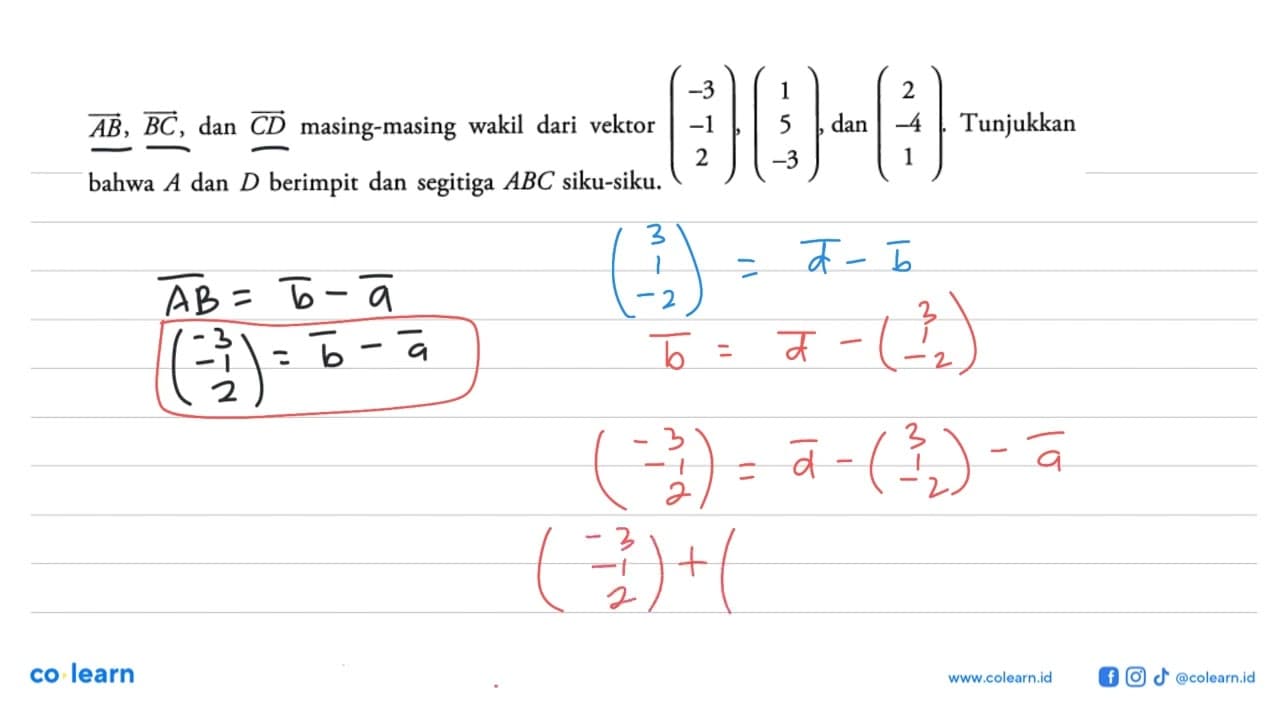 AB, BC, dan CD masing-masing wakil dari vektor (-3 -1 2), (1 5 -3), dan (2 -4 1). Tunjukkan
bahwa A dan D berimpit dan segitiga ABC siku-siku.
AB = b - a
(-3 -1 2) = b - a
(3 1 -2) = d - b
b = d - (3 1 -2)
(-3 -1 2) = d - (3 1 -2) - a
(-3 -1 2) + (
co learn
www.colearn.id
@colearn.id